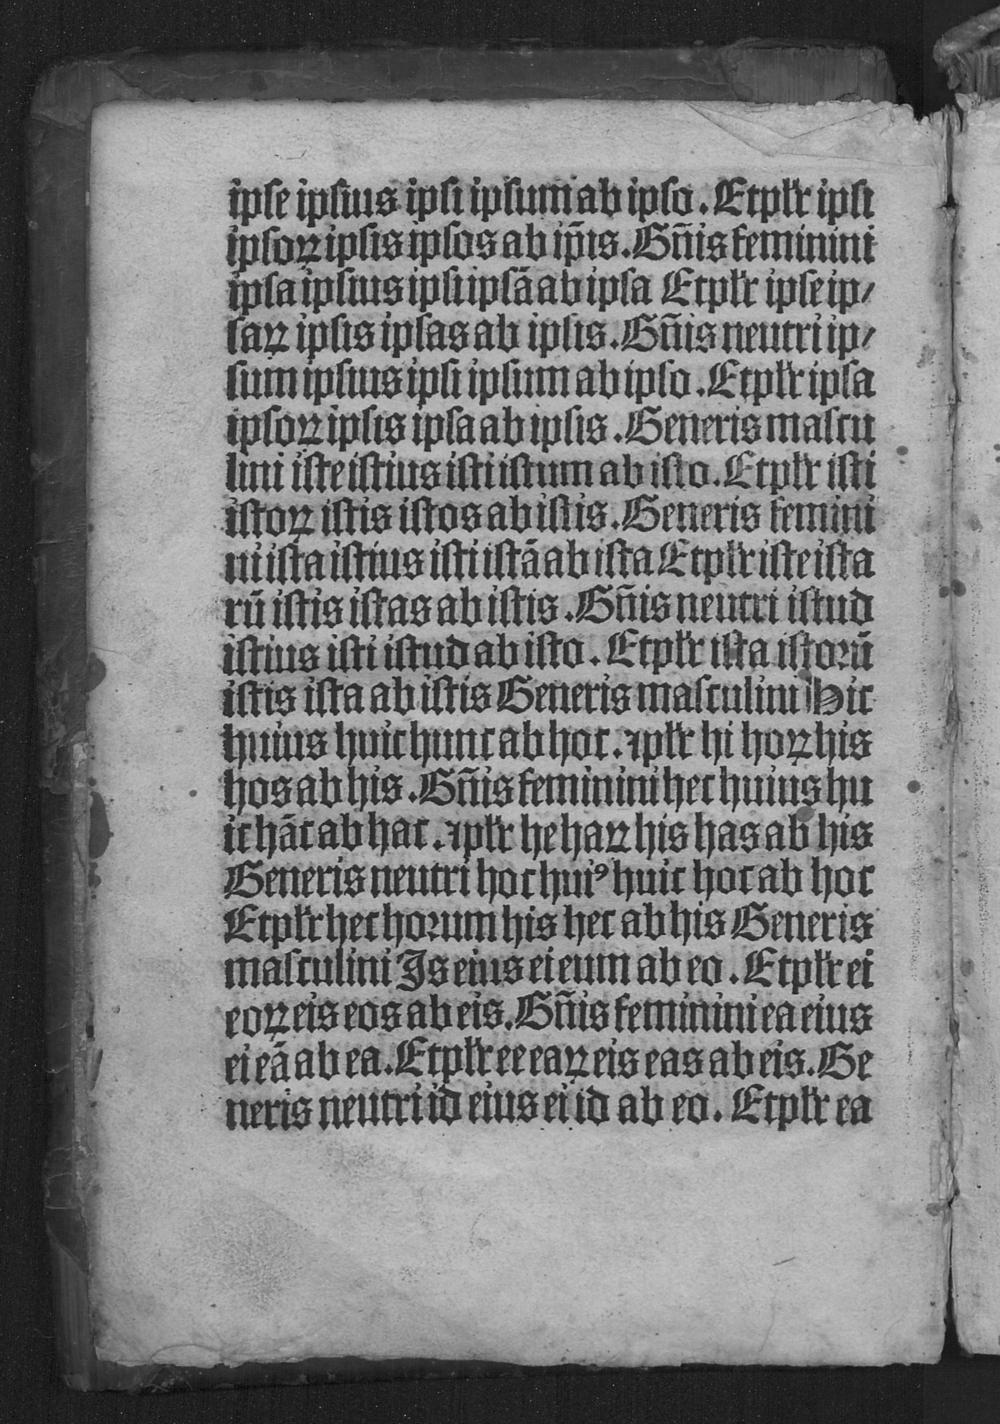 ipſe ipſius ipſi ipſum ab ipſo. Etplr̄ ipſi
ipſoꝝ ipſis ipſos ab ip̄is. Gn̄is feminini
ipſa ipſius ipſi ipſā ab ipſa Etplr̄ ipſe ip⸗
ſaꝝ ipſis ipſas ab ipſis. Gn̄is neutri ip⸗
ſum ipſius ipſi ipſum ab ipſo. Etplr̄ ipſa
ipſoꝝ ipſis ipſa ab ipſis. Generis maſcu
lini iſte iſtius iſti iſtum ab iſto. Etplr̄ iſti
iſtoꝝ iſtis iſtos ab iſtis. Generis femini
ni iſta iſtius iſti iſtā ab iſta Etplr̄ iſte iſta
rū iſtis iſtas ab iſtis. Gn̄is neutri iſtud
iſtius iſti iſtud ab iſto. Etplr̄ iſta iſtoꝛū
iſtis iſta ab iſtis Generis maſculini Hic
huius huic hunc ab hoc. ⁊plr̄ hi hoꝝ his
hos ab his. Gn̄is feminini hec huius hu
ic hāc ab hac. ⁊plr̄ he haꝝ his has ab his
Generis neutri hoc huiꝰ huic hoc ab hoc
Etplr̄ hec hoꝛum his hec ab his Generis
maſculini Is eius ei eum ab eo. Etplr̄ ei
eoꝝ eis eos ab eis. Gn̄is feminini ea eius
ei eā ab ea. Etplr̄ ee eaꝝ eis eas ab eis. Ge
neris neutri id eius ei id ab eo. Etplr̄ ea